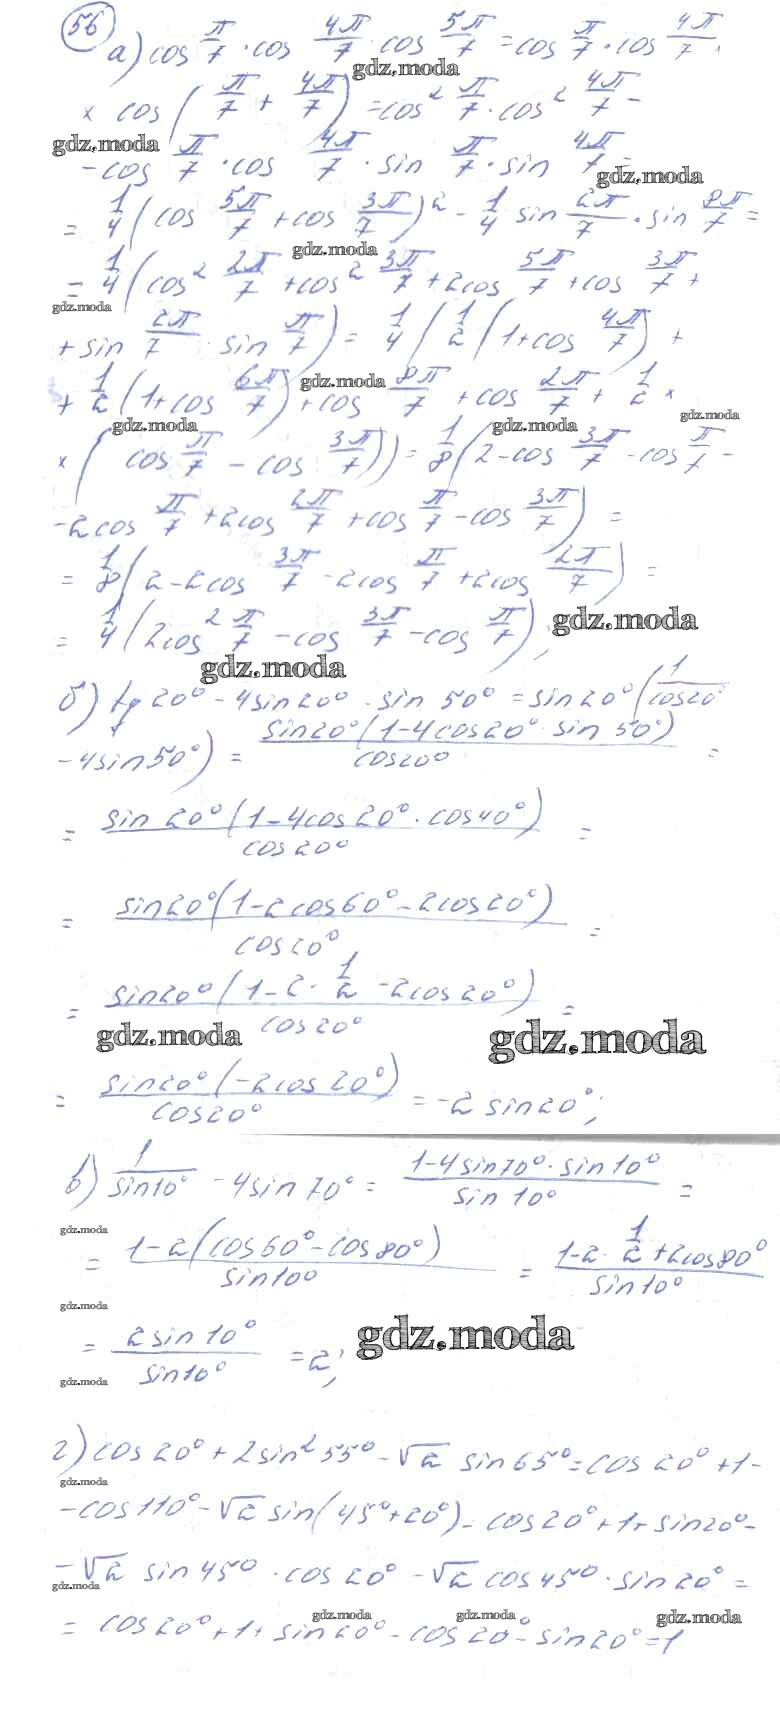 56
а) cos π/7 · cos 4π/7 · cos 5π/7 = cos π/7 · cos 4π/7 ·
gdz.moda
× cos (π/7 + 4π/7) = cos² π/7 · cos² 4π/7 -
gdz.moda
- cos π/7 · cos 4π/7 · sin π/7 · sin 4π/7 =
gdz.moda
= 1/4 (cos 5π/7 + cos 3π/7)² - 1/4 sin 2π/7 · sin 8π/7 =
gdz.moda
= 1/4 (cos² 2π/7 + cos² 3π/7 + 2cos 5π/7 + cos 3π/7 +
gdz.moda
+ sin 2π/7 · sin π/7) = 1/4 (1/2 (1 + cos 4π/7) +
+ 1/2 (1 + cos 6π/7) + cos 8π/7 + cos 2π/7 + 1/2 ×
gdz.moda
gdz.moda gdz.moda gdz.moda
× (cos π/7 - cos 3π/7)) = 1/8 (2 - cos 3π/7 - cos π/7 -
- 2cos π/7 + 2cos 2π/7 + cos π/7 - cos 3π/7) =
= 1/8 (2 - 2cos 3π/7 - 2cos π/7 + 2cos 2π/7) =
= 1/4 (2cos² π/7 - cos 3π/7 - cos π/7);
gdz.moda
gdz.moda
б) tg 20° - 4sin 20° · sin 50° = sin 20° (1/cos 20°
- 4sin 50°) = sin 20° (1 - 4cos 20° · sin 50°)/cos 20° =
= sin 20° (1 - 4cos 20° · cos 40°)/cos 20° =
= sin 20° (1 - 2cos 60° - 2cos 20°)/cos 20° =
= sin 20° (1 - 2 · 1/2 - 2cos 20°)/cos 20° =
gdz.moda gdz.moda
= sin 20° (-2cos 20°)/cos 20° = -2 sin 20°;
в) 1/sin 10° - 4sin 70° = 1 - 4sin 70° · sin 10°/sin 10° =
gdz.moda
= 1 - 2(cos 60° - cos 80°)/sin 10° = 1 - 2 · 1/2 + 2cos 80°/sin 10°
gdz.moda
= 2 sin 10°/sin 10° = 2;
gdz.moda
gdz.moda
г) cos 20° + 2sin² 55° - √2 sin 65° = cos 20° + 1 -
gdz.moda
- cos 110° - √2 sin (45° + 20°) = cos 20° + 1 + sin 20° -
- √2 sin 45° · cos 20° - √2 cos 45° · sin 20° =
gdz.moda
gdz.moda gdz.moda gdz.moda
= cos 20° + 1 + sin 20° - cos 20° - sin 20° = 1